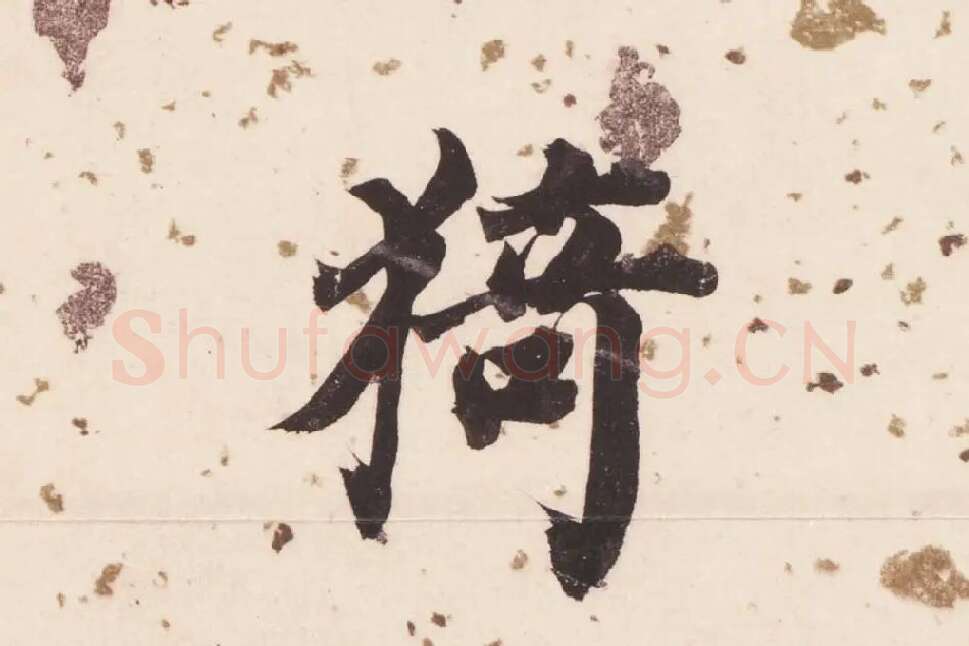 猗
Shufawang.CN